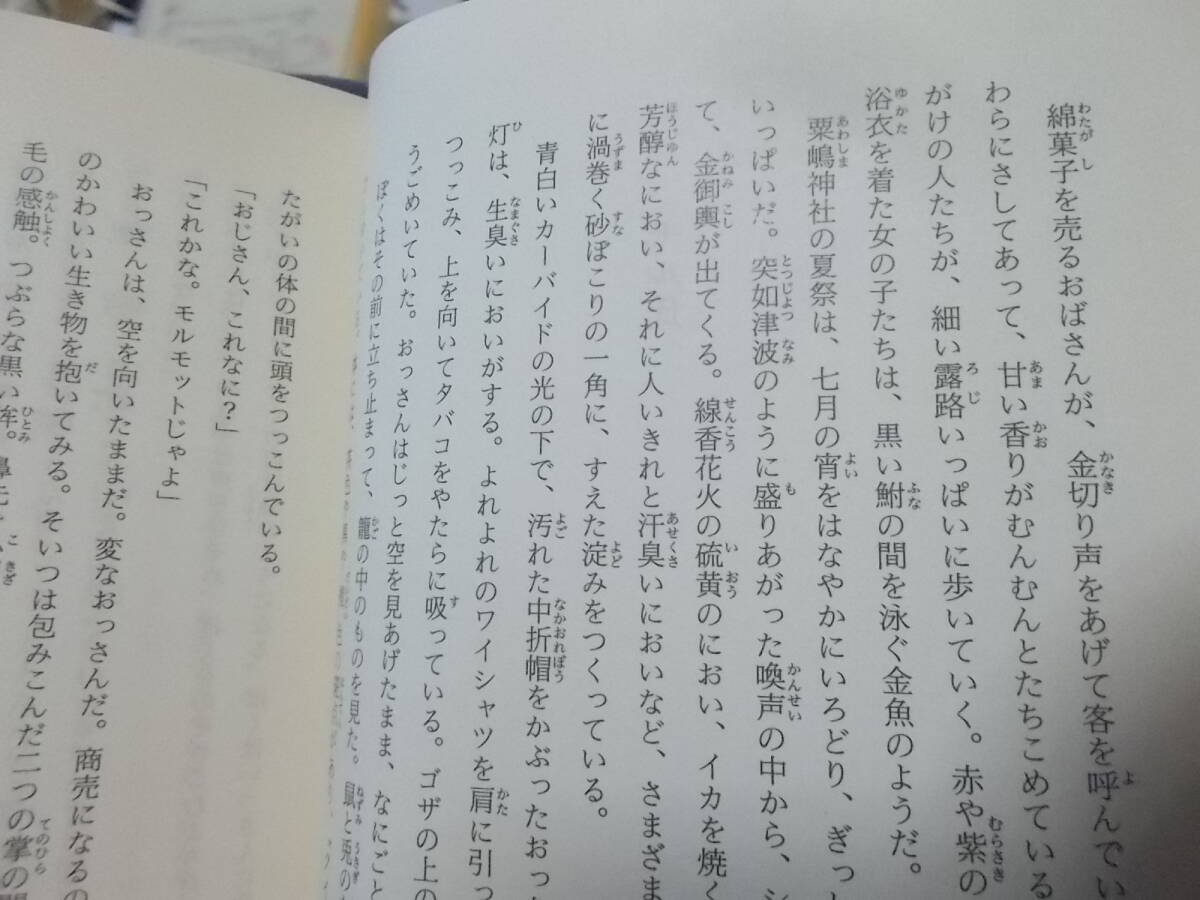 綿菓子を売るおばさんが、金切り声をあげて客を呼んでい
わらにさしてあって、甘い香りがむんむんとたちこめている
がけの人たちが、細い露路いっぱいに歩いていく。赤や紫の
浴衣を着た女の子たちは、黒い鮒の間を泳ぐ金魚のようだ。
粟嶋神社の夏祭は、七月の宵をはなやかにいろどり、ぎっし
いっぱいだ。突如津波のように盛りあがった喚声の中から、シ
て、金御輿が出てくる。線香花火の硫黄のにおい、イカを焼く
芳醇なにおい、それに人いきれと汗臭いにおいなど、さまざま
に渦巻く砂ぼこりの一角に、すえた淀みをつくっている。
青白いカーバイドの光の下で、汚れた中折帽をかぶったおっ
灯は、生臭いにおいがする。よれよれのワイシャツを肩に引っ
つっこみ、上を向いてタバコをやたらに吸っている。ゴザの上の
うごめいていた。おっさんはじっと空を見あげたまま、なにごと
ぼくはその前に立ち止まって、籠の中のものを見た。鼠と兎の
たがいの体の間に頭をつっこんでいる。
「おじさん、これなに?」
「これかな。モルモットじゃよ」
おっさんは、空を向いたままだ。変なおっさんだ。商売になるの
のかわいい生き物を抱いてみる。そいつは包みこんだ二つの掌の
毛の感触。つぶらな黒い眸。